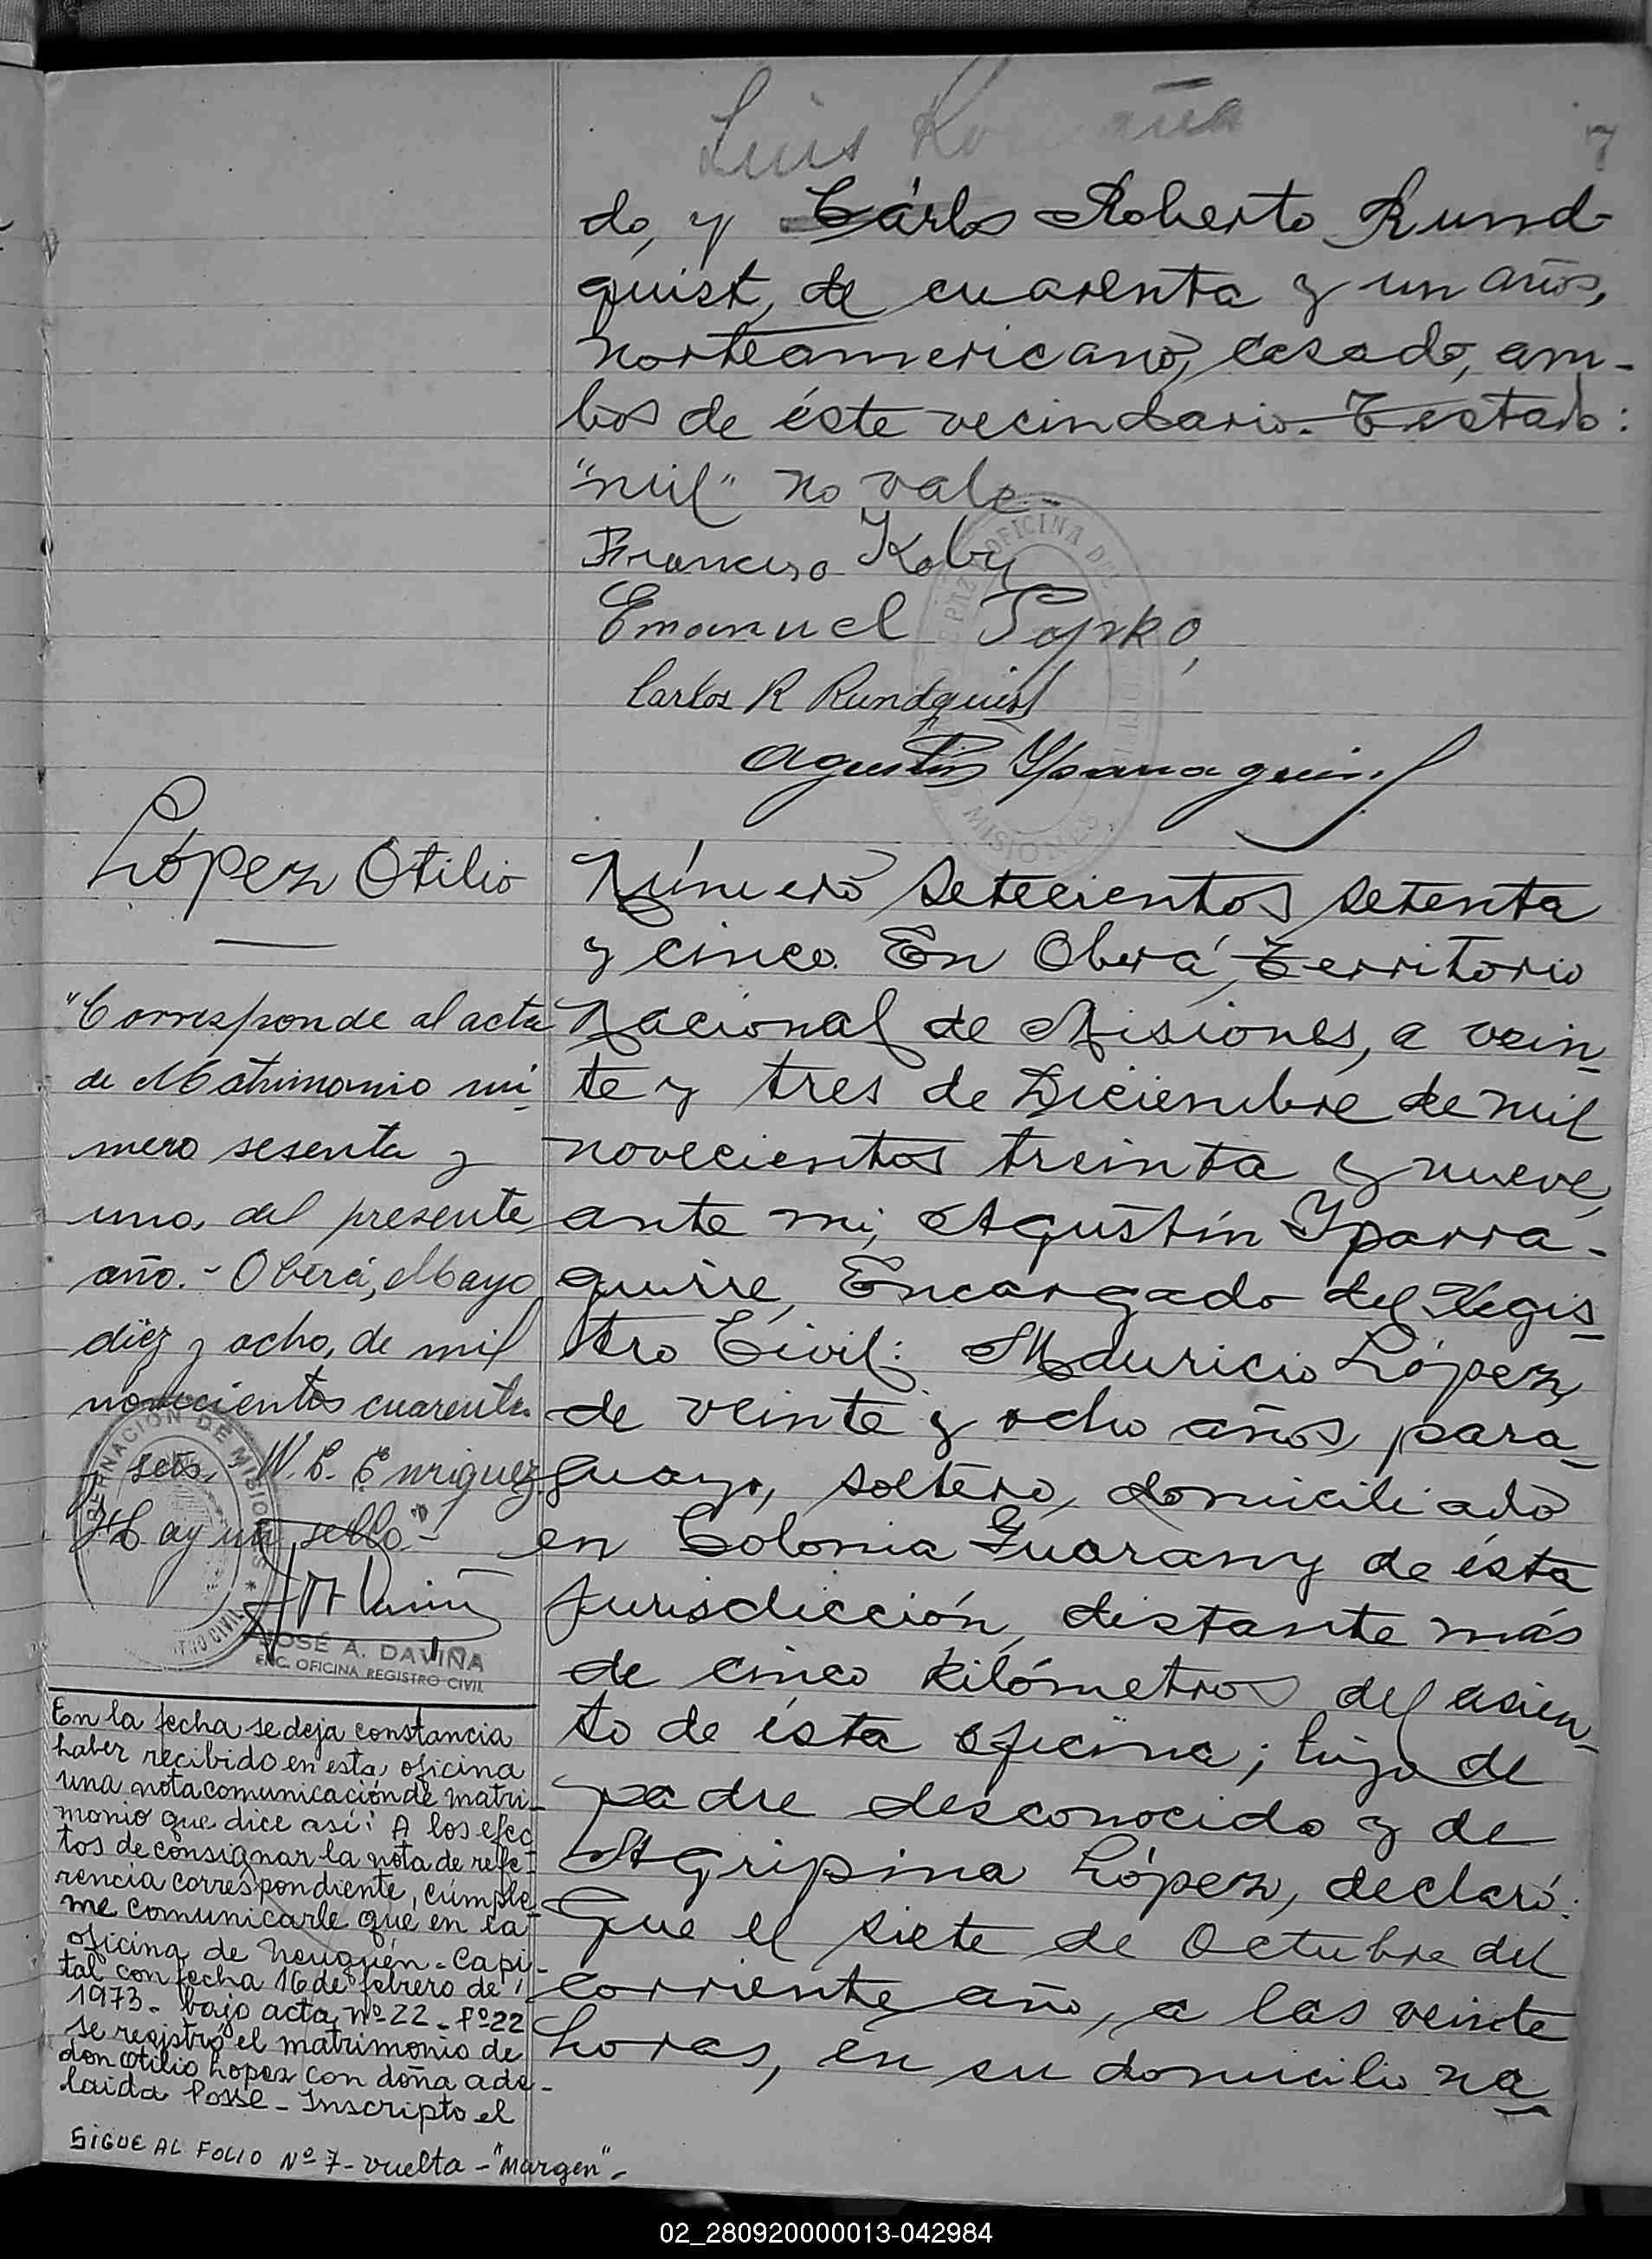 Luis
7
do, y Cárlos Roberto Rund-
quist, de cuarenta y un años,
norteamericano, casado, am-
bos de éste vecindario. Testado:
"mil" no vale.-
Francisco Koby
Emanuel Popko,
Carlos R Rundquist
Agustin Yparraguirre
OFICINA DEL
PAZ
MISIONES
López Otilio
"Corresponde al acta
de Matrimonio nú-
mero sesenta y
uno, del presente
año.- Oberá, Mayo
diéz y ocho, de mil
novecientos cuarenta
y seis, W.E. Enriquez
Hay un sello"-
GOBERNACION DE MISIONES *
REGISTRO CIVIL
JOSÉ A. DAVIÑA
ENC. OFICINA REGISTRO CIVIL
En la fecha se deja constancia
haber recibido en esta oficina
una nota comunicación de matri-
monio que dice así: A los efec-
tos de consignar la nota de refe-
rencia correspondiente, cúmple-
me comunicarle que en la
oficina de Neuquén-Capi-
tal con fecha 16 de febrero de
1973- bajo acta Nº 22- Fº 22
se registró el matrimonio de
don Otilio Lopez con doña Ade-
laida Posse- Inscripto el
SIGUE AL FOLIO Nº 7- vuelta-"Margen"-
Número setecientos setenta
y cinco. En Oberá, Territorio
Nacional de Misiones, a vein-
te y tres de Diciembre de mil
novecientos treinta y nueve,
ante mi, Agustín Yparra-
guirre, Encargado del Regis-
tro Civil: Mauricio López,
de veinte y ocho años, para-
guayo, soltero, domiciliado
en Colonia Guarany de ésta
jurisdicción, distante más
de cinco kilómetros del asien-
to de ésta oficina; hijo de
padre desconocido y de
Agripina López, declaró:
Que el siete de Octubre del
corriente año, a las veinte
horas, en su domicilio na-
02_280920000013-042984